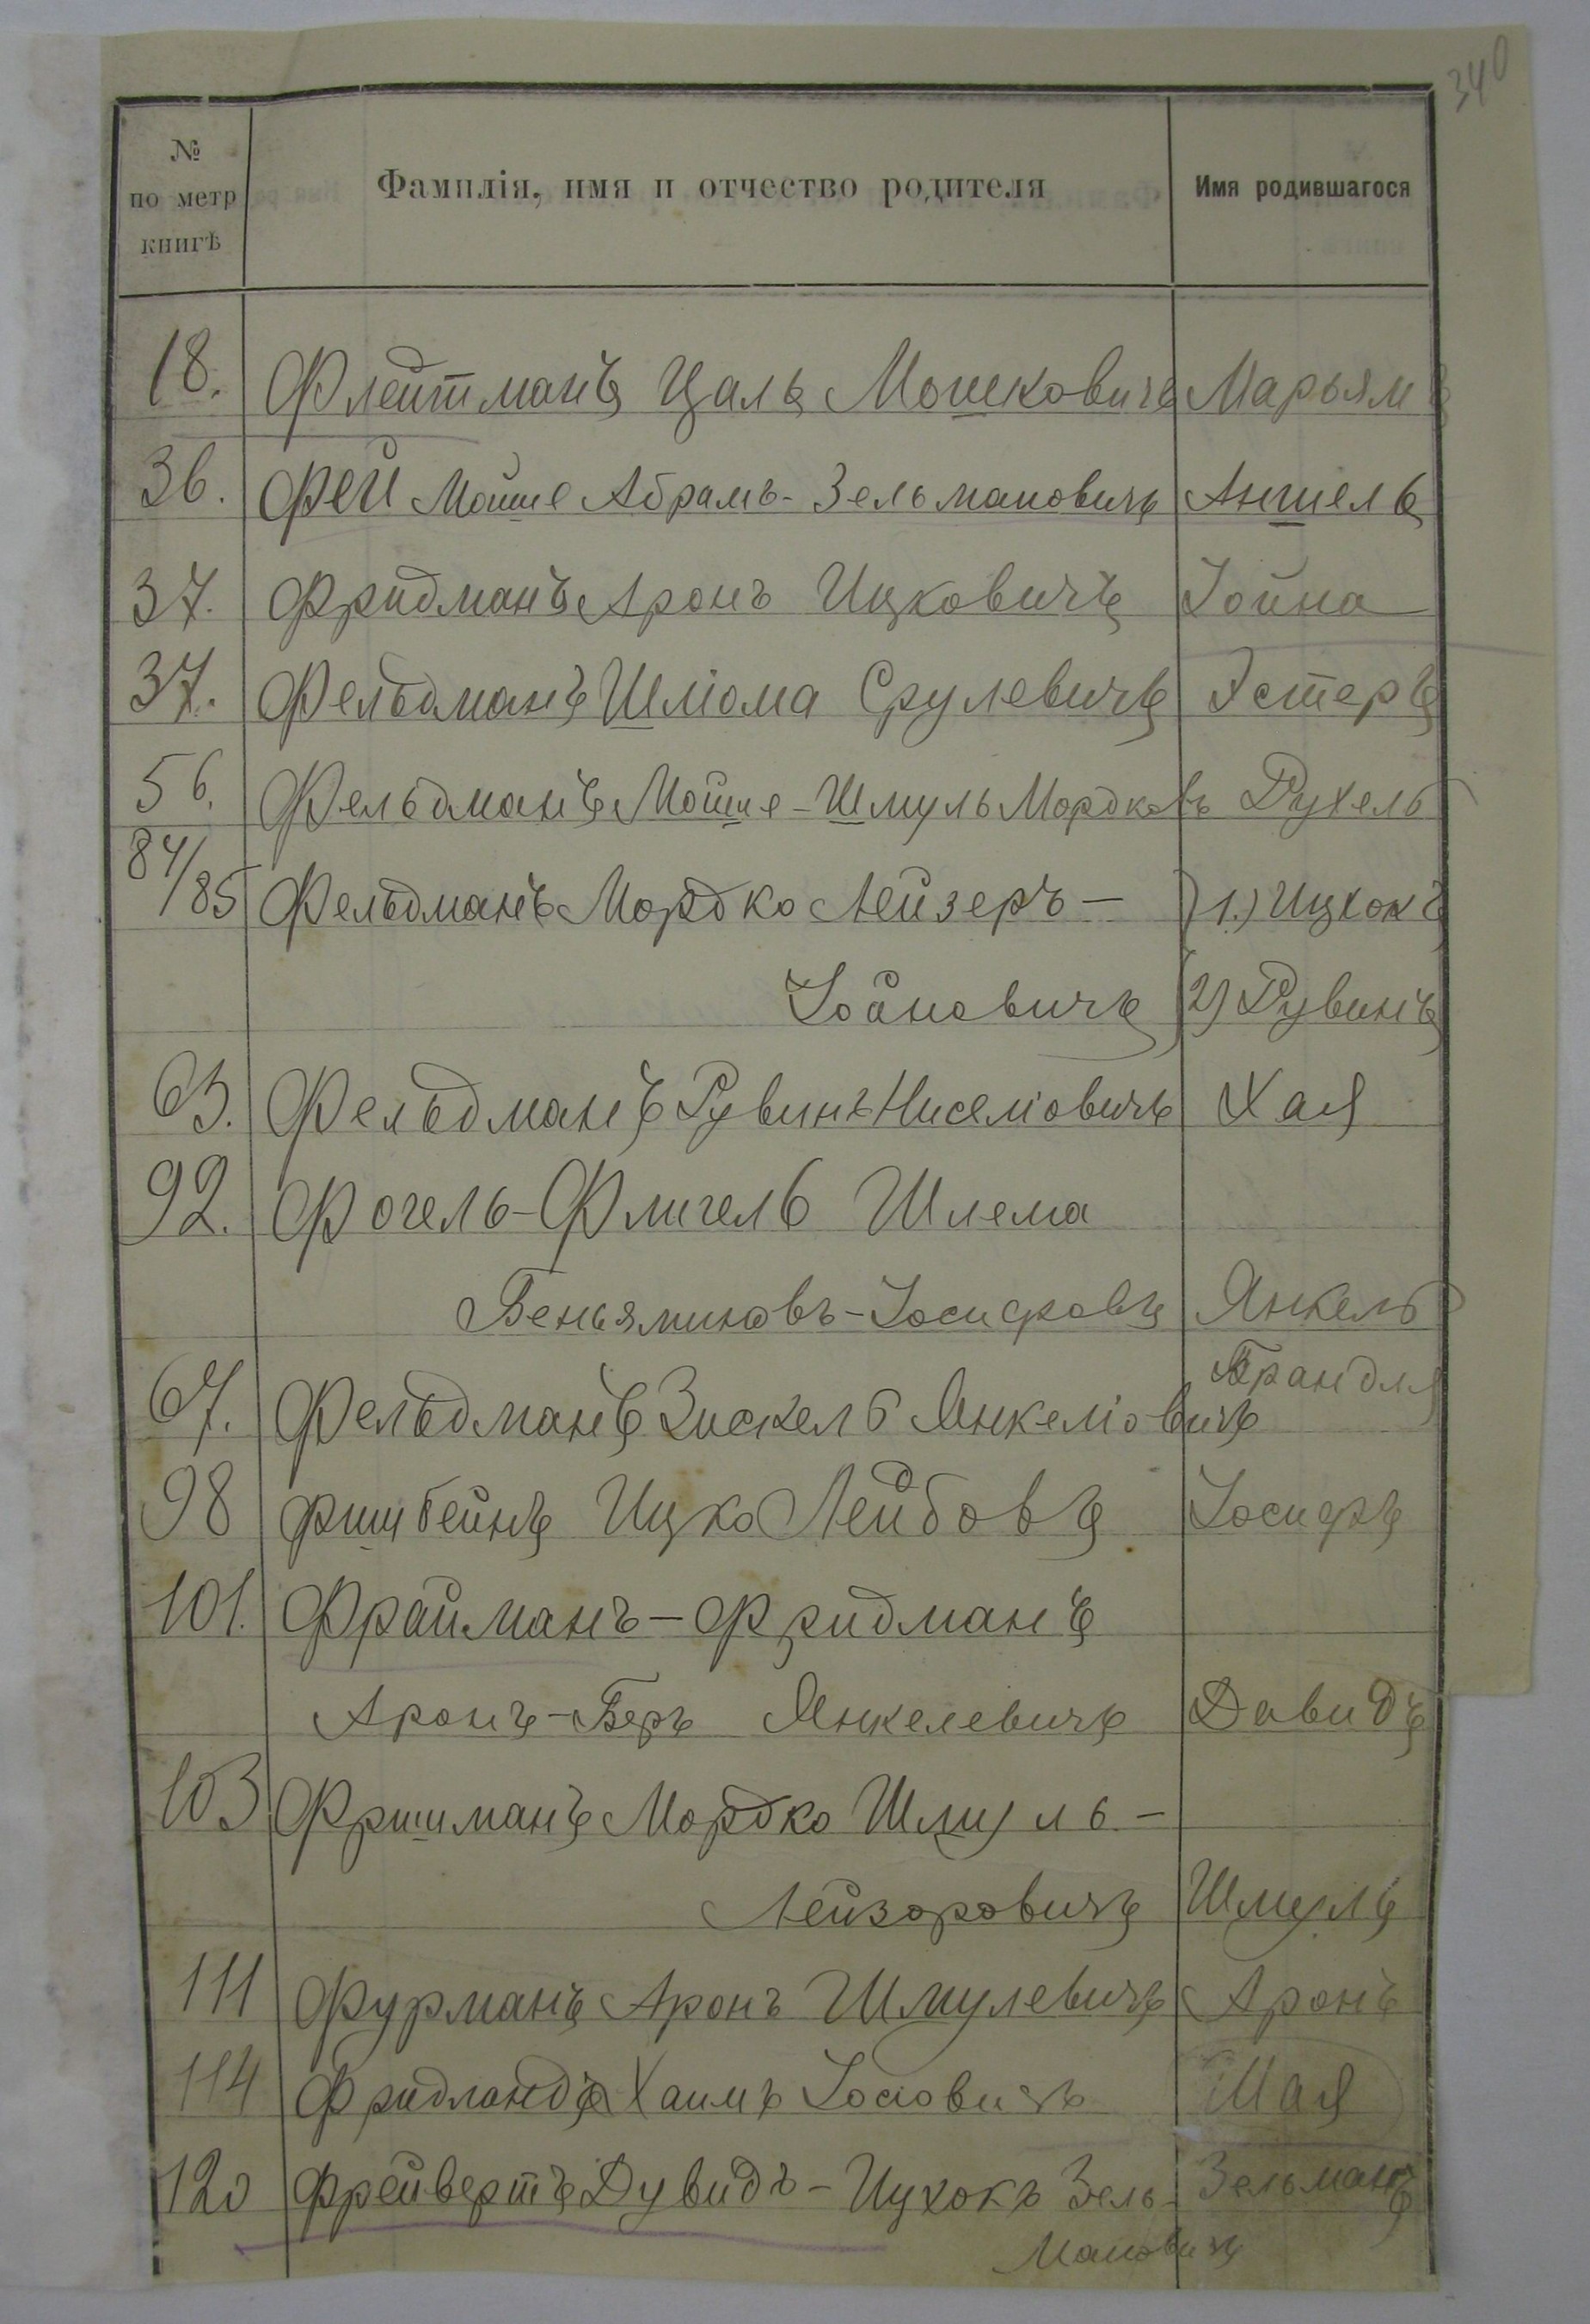 340
№ по метр книгѣ Фамилія, имя и отчество родителя Имя родившагося
18. Флейтманъ Цаль Мошковичъ Марьямъ
36. Фей Мойше Абрамъ-Зельмановичъ Аншель
37. Фридманъ Аронъ Ицковичъ Іойна
37. Фельдманъ Шліома Срулевичъ Эстеръ
56. Фельдманъ Мойше-Шмуль Мордковъ Рухель
84/85 Фельдманъ Мордко Лейзеръ- 1.) Ицхокъ
Іойновичъ 2) Рувинъ
63. Фельдманъ Рувинъ Ниселіовичъ Хая
92. Фогель-Флигель Шлема
Беньяминовъ-Іосифовъ Янкель
67. Фельдманъ Зискель Янкеліовичъ Брандля
98 Фишбейнъ Ицко Лейбовъ Іосифъ
101. Фрайманъ-Фридманъ
Аронъ-Беръ Янкелевичъ Давидъ
103 Фришманъ Мордко Шмуль-
Лейзоровичъ Шмуль
111 Фурманъ Аронъ Шмулевичъ Аронъ
114 Фридландъ Хаимъ Іосіовичъ Мая
120 Фрейвертъ Дувидъ-Ицхокъ Зель- Зельманъ
мановичъ